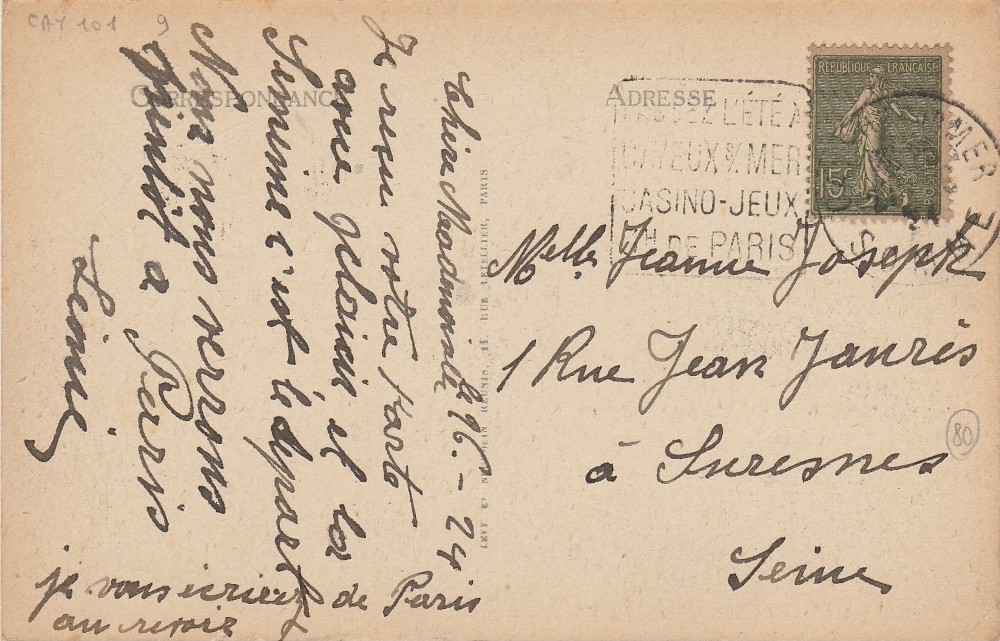 CAY 101 9
CORRESPONDANCE
Le 26. - 24
Chère Madmoiselle
Je resu votre karte
avec plaisir et la
Semine c'est le depart
Nous nous verrons
bientôt a Paris
je vous ecrirez de Paris
au revoir
LEVY ET NEURDEIN REUNIS, 44, RUE LETELLIER, PARIS
ADRESSE
PASSEZ L'ÉTÉ A
CAYEUX S/ MER
CASINO-JEUX
DE PARIS
RÉPUBLIQUE FRANÇAISE
15c
POSTES
MER
Melle Jeanne Joseph
1 Rue Jean Jaurès
à Suresnes
Seine
80